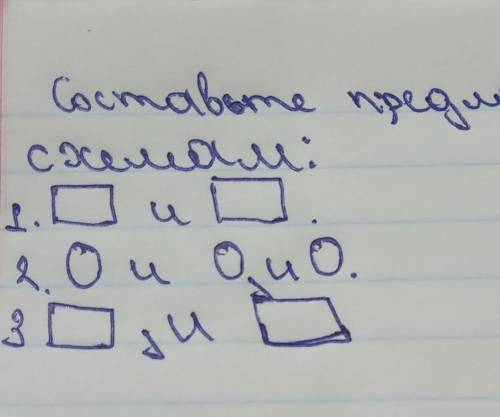 Составьте предл
схемам:
1. □ и □.
2. О и О, и О.
3 □, и □